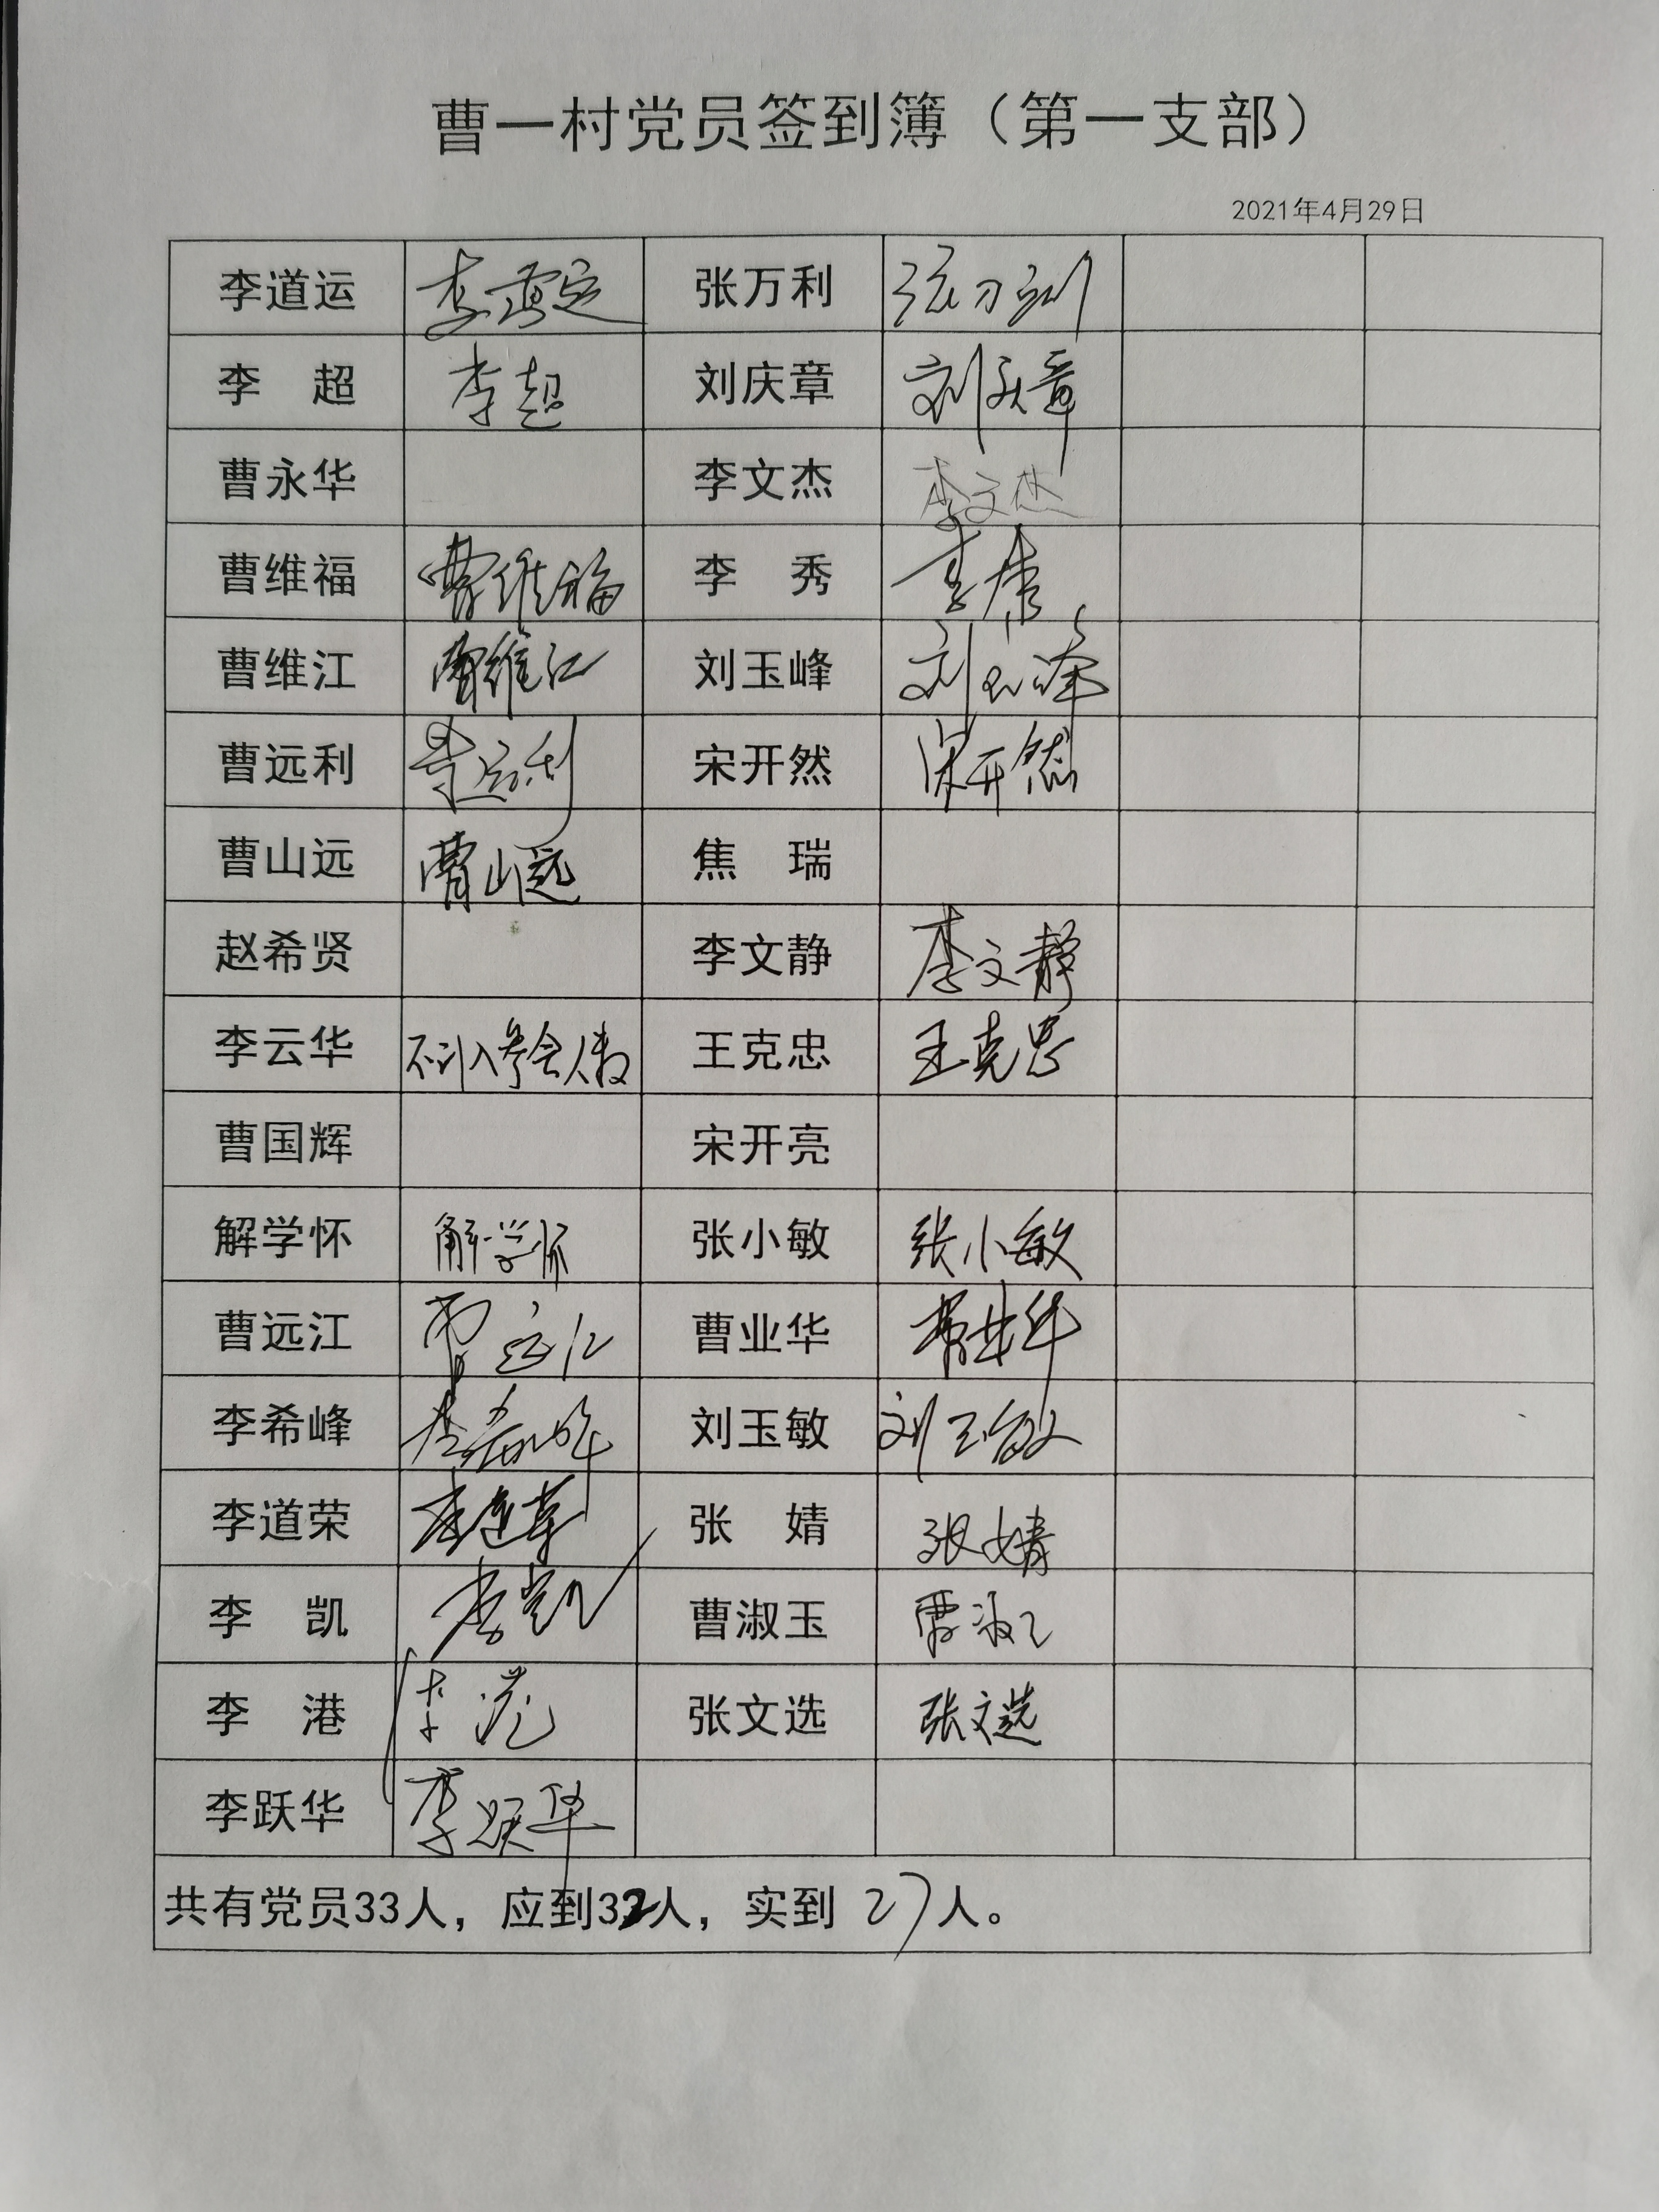 曹一村党员签到簿（第一支部）
2021年4月29日
李道运 李道运 张万利 张万利
李 超 李超 刘庆章 刘庆章
曹永华 李文杰 李文杰
曹维福 曹维福 李 秀 李秀
曹维江 曹维江 刘玉峰 刘玉峰
曹远利 曹远利 宋开然 宋开然
曹山远 曹山远 焦 瑞
赵希贤 李文静 李文静
李云华 不计入参会人数 王克忠 王克忠
曹国辉 宋开亮
解学怀 解学怀 张小敏 张小敏
曹远江 曹远江 曹业华 曹业华
李希峰 李希峰 刘玉敏 刘玉敏
李道荣 李道荣 张 婧 张婧
李 凯 李凯 曹淑玉 曹淑玉
李 港 李港 张文选 张文选
李跃华 李跃华
共有党员33人，应到32人，实到 27人。